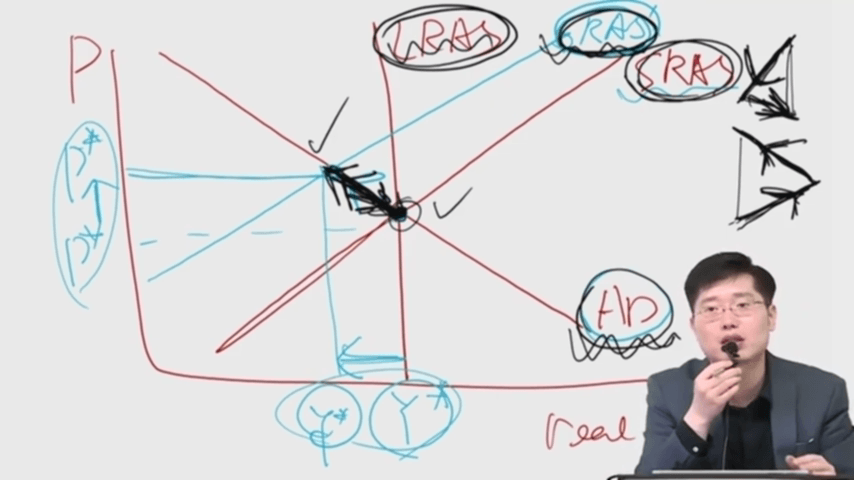 LRAS
SRAS
SRAS
P
P*
P*
AD
Y*
Y*
real